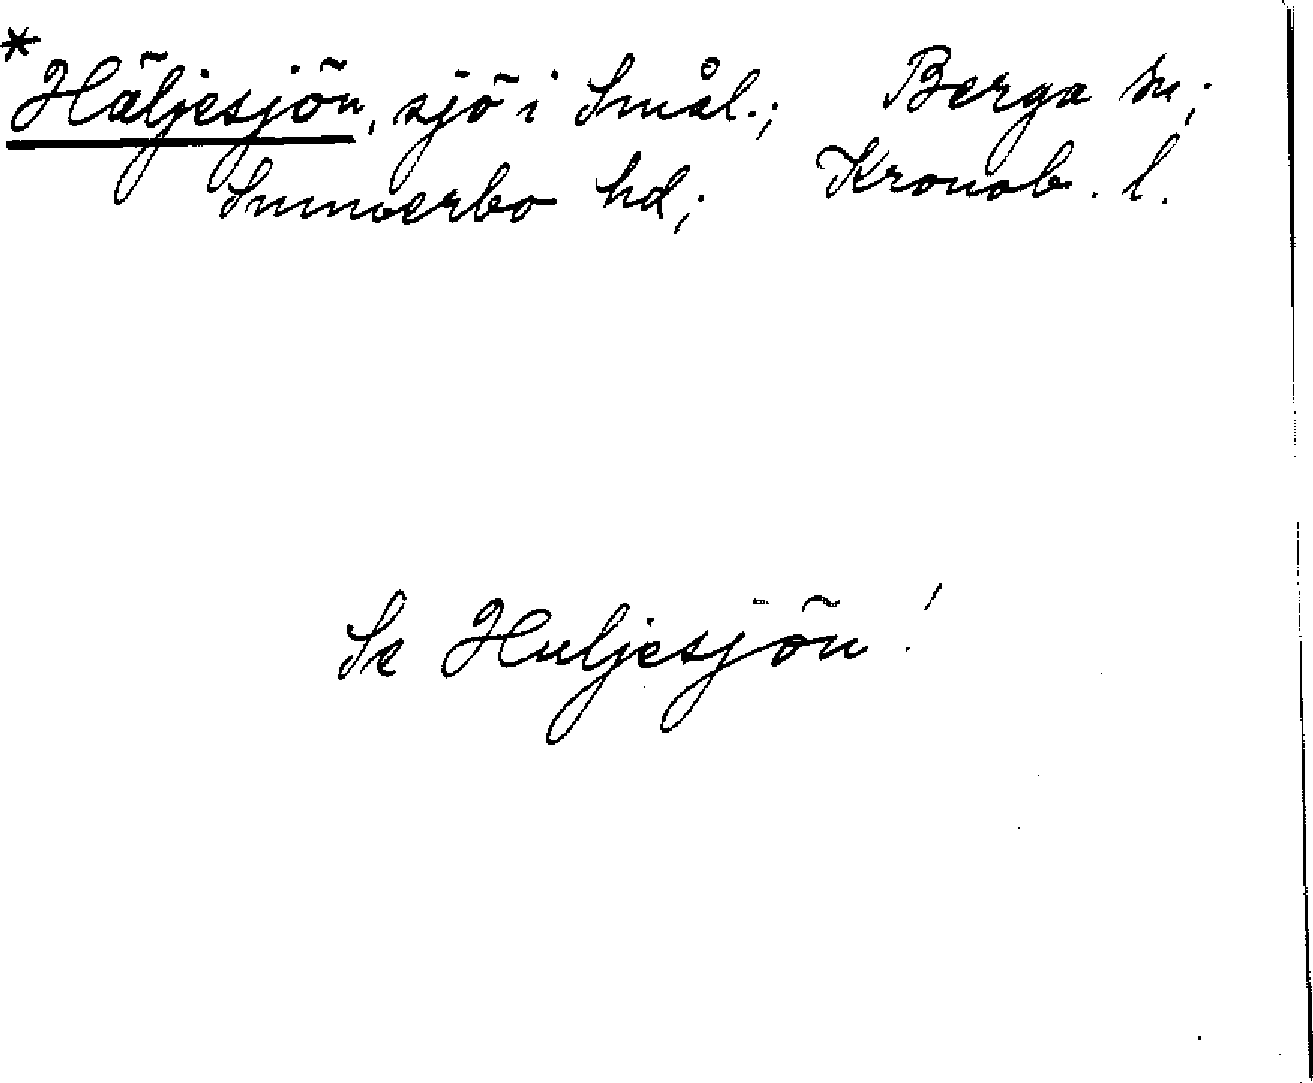 *Häljesjön, sjö i Smål.; Berga sn;
Sunnerbo hd; Kronob. l.
Se Huljesjön!